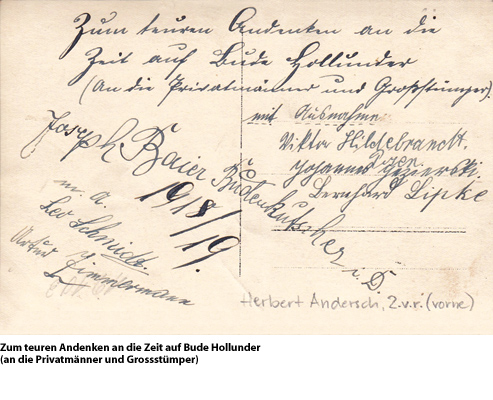 Zum teuren Andenken an die
Zeit auf Bude Hollunder
(An die Privatmänner und Großstümper).
mit Ausnahme
Viktor Hildebrandt.
Johannes
Bernhard Lipke
Joseph Baier Budenkutscher i. D.
1918/19.
m. a.
Leo Schmidt.
Artur Zimmermann
Herbert Andersch, 2.v.r. (vorne)
Zum teuren Andenken an die Zeit auf Bude Hollunder
(an die Privatmänner und Grossstümper)